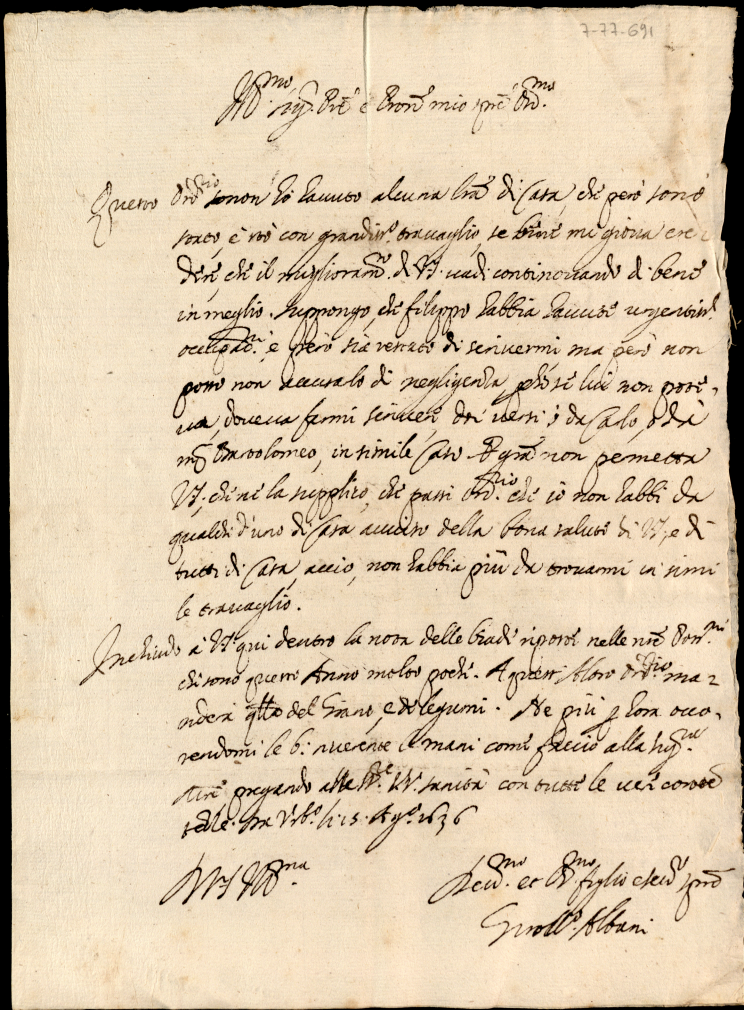 7-77-691
Ill.mo Sig.r P.re e P.ron mio sem.re Oss.mo
Questo ord.rio io non hò havuto alcuna l.ra di Casa, che però sono
stato, e stò con grandiss.o travaglio, se bene mi giova cre
dere, che il miglioram.to di V.S. vadi continovando di bene
in meglio. Suppongo, che filippo habbia havute urgentiss.e
occupat.ni, e però sia restato di scrivermi ma però non
posso non accusarlo di negligenza, p.che se lui non pote-
va, doveva farmi scrivere, dei versi ò da Carlo, ò da
m.r Bartolomeo, in simile Caso. P gra.a non permetta
V.S., che ne la supplico, che passi ord.rio che io non habbi da
qualch'd'uno di Casa avviso della bona salute di V.S., e di
tutti di Casa, acciò, non habbia più da trovarmi in simi
le travaglio.
Inchiudo à V.S. qui dentro la nota delle biade riposte nelle n.re Poss.ni
che sono questo Anno molto poche. A quest'Altro ord.rio ma-
nderà q.llo del Grano, e de legumi. Ne più p hora occo-
rendomi le b. riverente le mani come faccio alla Sig.ra
M.re pregando alle SS. VV. sanità con tutte le vere contē
tezze. Da Urb.o li 15. Ag.o 1636
D V S Ill.ma
Dev.mo et Obl.mo figlio e ser.re sem.re
Giroll.o Albani